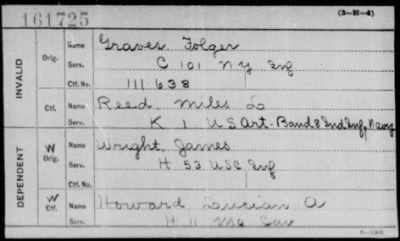 161725
(3-H-4)
INVALID
Orig. Name Graves Folger
Serv. C 101 NY Inf
Ctf. No. 111 638
Ctf. Name Reed Miles
Serv. K 1 US Art. Band 8 Ind Inf, Navy
DEPENDENT
W Orig. Name Wright, James
Serv. H 53 USC Inf
Ctf. No.
W Ctf. Name Howard Lucian A
Serv. H 11 Mo Cav